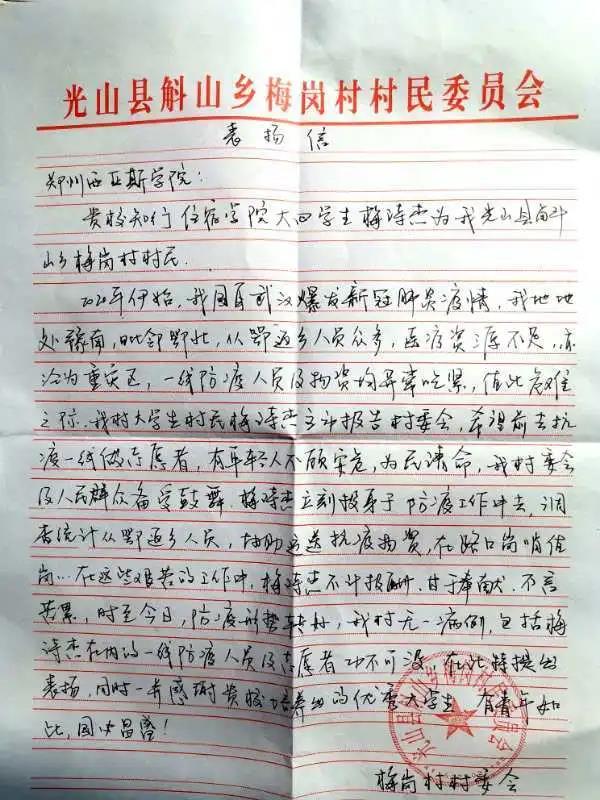 光山县斛山乡梅岗村村民委员会
表扬信
郑州西亚斯学院:
贵校知行住宿学院大四学生梅诗杰为我光山县斛
山乡梅岗村村民.
2020年伊始,我国武汉爆发新冠肺炎疫情,我地地
处豫南,毗邻鄂北,从鄂返乡人员众多,医疗资源不足,亦
沦为重灾区,一线防疫人员及物资均异常吃累,值此危难
之际,我村大学生村民梅诗杰主动报告村委会,希望前去抗
疫一线做志愿者,有年轻人不顾安危,为民请命,我村委会
及人民群众备受鼓舞.梅诗杰立刻投身于防疫工作中去,调
查统计从鄂返乡人员,协助运送抗疫物资,在路口岗哨值
岗…在这些艰苦的工作中,梅诗杰不计报酬.甘于奉献.不言
苦累,时至今日,防疫形势转好,我村无一病例,包括梅
诗杰在内的一线防疫人员及志愿者功不可没,在此特提出
表扬,同时一并感谢贵校培养出的优秀大学生,有青年如
此,国必昌盛!
光山县斛山乡梅岗村村民委员会
梅岗村村委会